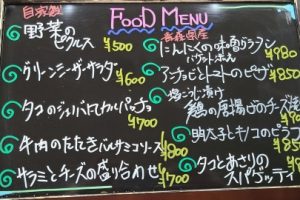 FOOD MENU
自家製
野菜の
ピクルス ¥500
グリーンシーザーサラダ
¥600
タコのジェノバ风カルパッチョ
¥700
牛肉のたたきバルサミコソース
¥800
サラミとチーズの盛り合わせ
¥700
青森県産
にんにくの
バケットボート
¥980
アンチョビとトマトのピザ
¥850
塩こうじ漬け
鶏の唐揚げのチーズ
¥9
明太子とキノコのピラフ
¥85
タコとあさりの
スパゲッティ